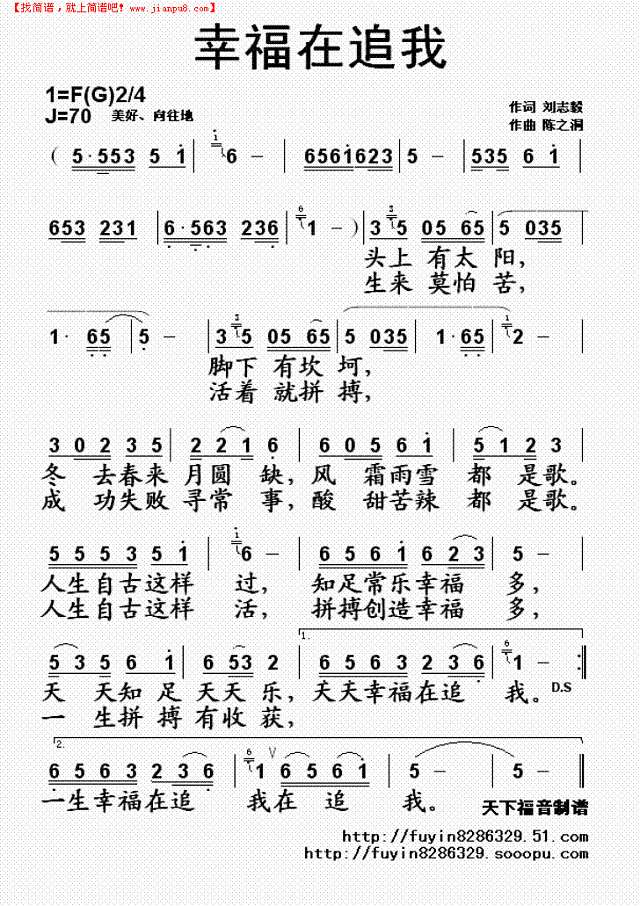 【找简谱，就上简谱吧！www.jianpu8.com】
幸福在追我
1=F(G)2/4
J=70 美好、向往地
作词 刘志毅
作曲 陈之涧
( 5·553 5 1 | 6 – | 6561623 | 5 – | 535 6 1 |
653 231 | 6·563 236 | 1 – ) | 3 5 05 65 | 5 035 |
头上 有太 阳，
生来 莫怕 苦，
1· 65 | 5 – | 3 5 05 65 | 5 035 | 1· 65 | 2 – |
脚下 有坎 坷，
活着 就拼 搏，
3 0 2 3 5 | 2 2 1 6 | 6 0 5 6 1 | 5 1 2 3 |
冬 去春来 月圆 缺，风 霜雨雪 都 是歌。
成 功失败 寻常 事，酸 甜苦辣 都 是歌。
5 5 5 3 5 1 | 6 – | 6 5 6 1 6 2 3 | 5 – |
人生自古这样 过， 知足常乐幸福 多，
人生自古这样 活， 拼搏创造幸福 多，
1.
5 3 5 6 1 | 6 53 2 | 6 5 6 3 2 2 3 6 | 1 – :|
天 天知 足 天天 乐，天天幸福在追 我。D.S
一 生拼 搏 有收 获，
2.
6 5 6 3 2 2 3 6 | 1 V 6 5 6 1 | 5 – | 5 – ‖
一生幸福在追 我在 追 我。 天下福音制谱
http://fuyin8286329.51.com/
http://fuyin8286329.sooopu.com/